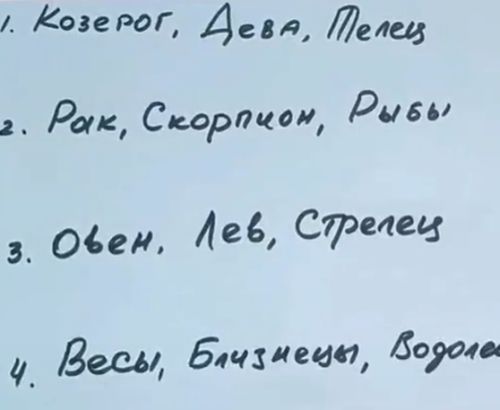 1. Козерог, Дева, Телец
2. Рак, Скорпион, Рыбы
3. Овен, Лев, Стрелец
4. Весы, Близнецы, Водоле